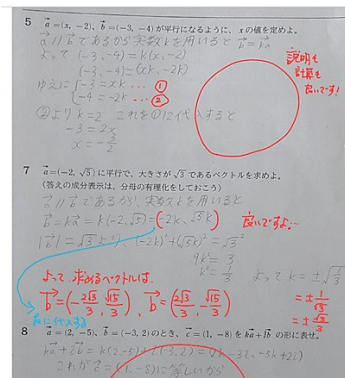 5 a⃗=(x, -2), b⃗=(-3, -4) が平行になるように, x の値を定めよ。
a⃗ // b⃗ であるから実数kを用いると b⃗=ka⃗
よって (-3, -4) = k(x, -2)
(-3, -4) = (xk, -2k)
ゆえに { -3 = xk … ①
-4 = -2k … ②
②より k=2 これを①に代入すると
-3 = 2x
x = -3/2
説明も
計算も
良いです!
7 a⃗=(-2, √5) に平行で, 大きさが √3 であるベクトルを求めよ。
(答えの成分表示は, 分母の有理化をしておこう)
a⃗ // b⃗ であるから, 実数kを用いると
b⃗=ka⃗ = k(-2, √5) = (-2k, √5k) 良いですよ…
|b⃗| = √3 より, (-2k)²+(√5k)² = √3²
9k² = 3
k² = 1/3 よって k=±√1/3
= ±1/√3
= ±√3/3
よって 求めるベクトルは
b⃗=(-2√3/3, √15/3), b⃗=(2√3/3, -√15/3)
に代入する
8 a⃗=(2, -5), b⃗=(-3, 2) のとき, c⃗=(1, -8) を ka⃗+lb⃗ の形に表せ。
ka⃗+lb⃗ = k(2, -5)+l(-3, 2) = (2k-3l, -5k+2l)
これが c⃗=(1, -8) に等しいから